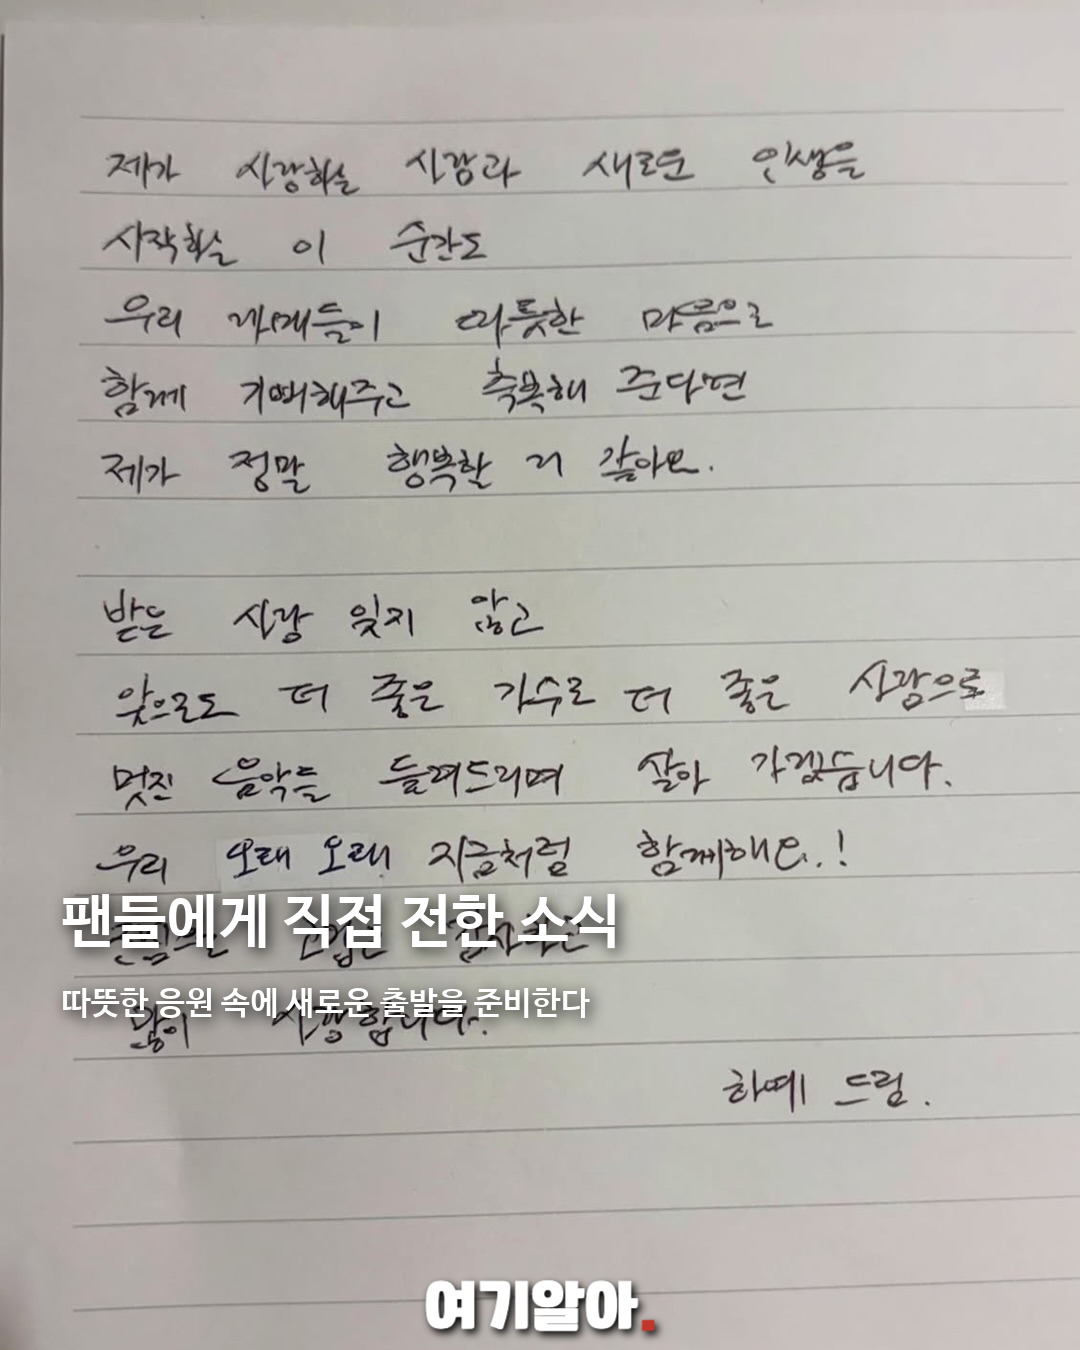 제가 사랑하는 사람과 새로운 인생을
시작하는 이 순간도
우리 가 따뜻한 마음으로
함께 기뻐해주고 축복해 준다면
제가 정말 행복할 거 같아요.
받은 사랑 잊지 않고
앞으로도 더 좋은 가수로 더 좋은 사람으로
멋진 음악들 들려드리며 살아 가겠습니다.
우리 오래 오래 지금처럼 함께해요.!
팬들에게 직접 전한 소식
따뜻한 응원 속에 새로운 출발을 준비한다
많이 사랑합니다.
드림.
여기알아.